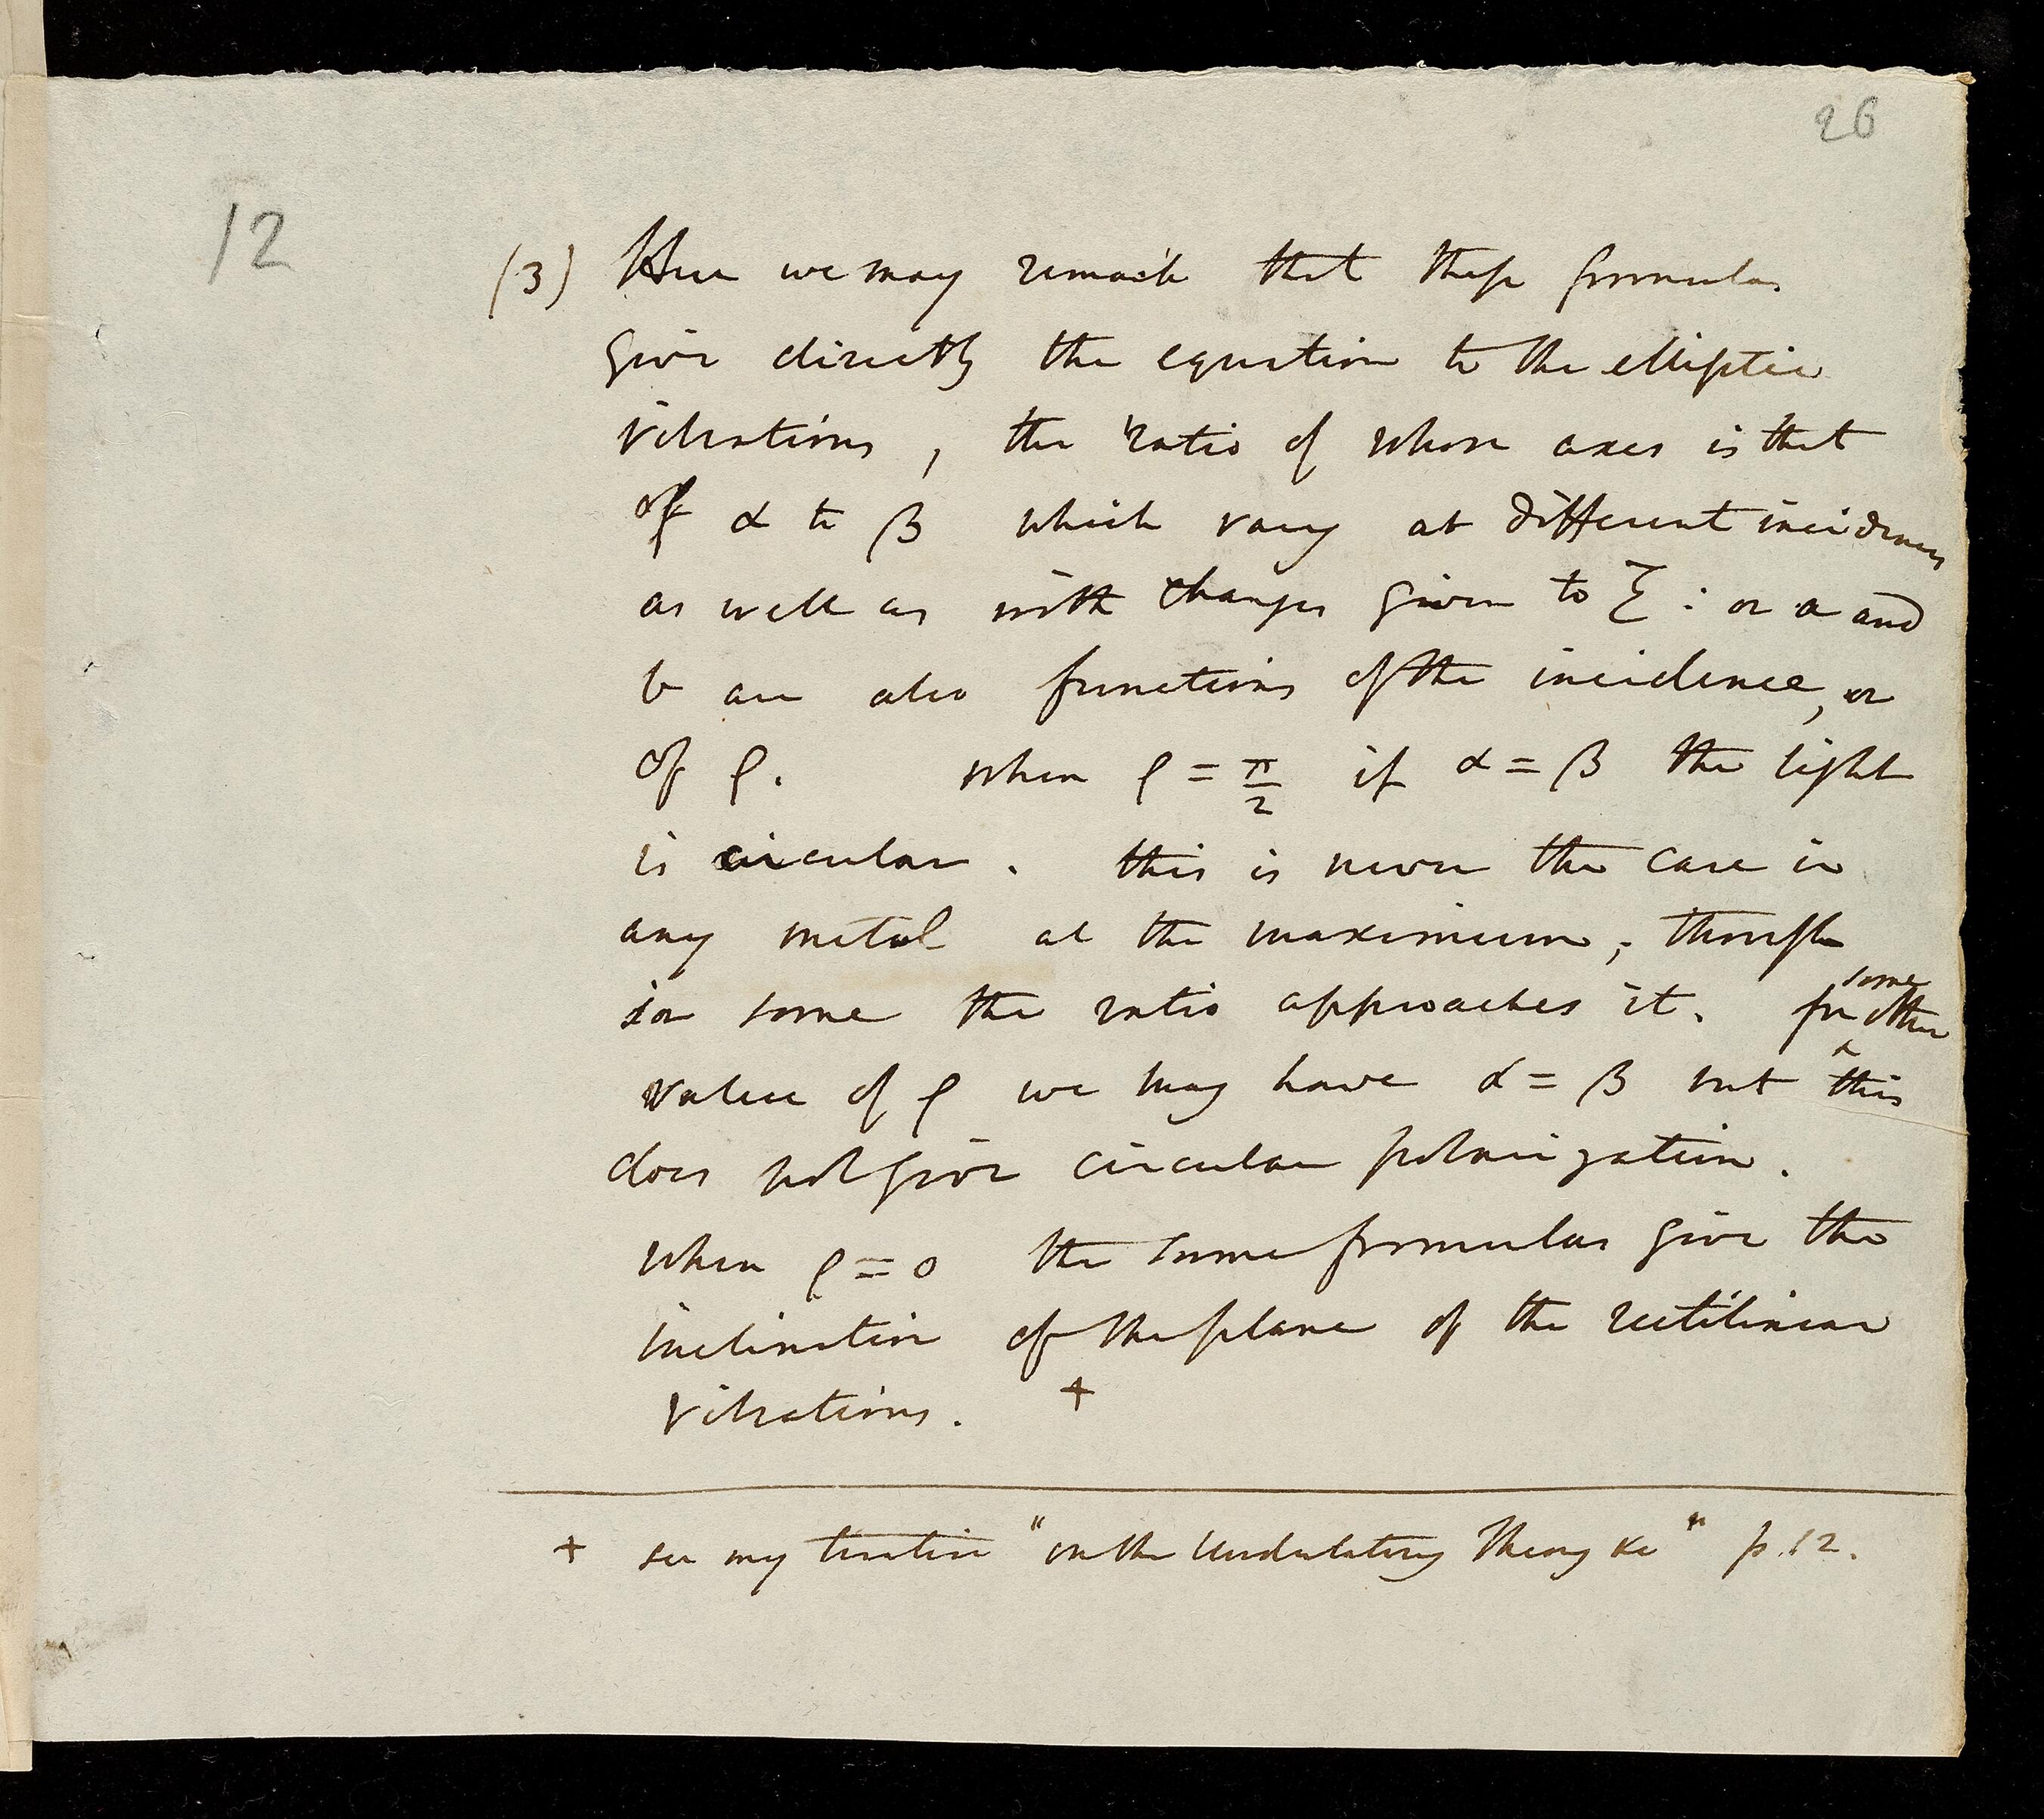 26
12
(3) Here we may remark that these formulas
give directly the equation to the elliptic
vibrations, the ratio of whose axes is that
of α to β which vary at different incidences
as well as with changes given to ξ : or a and
b are also functions of the incidence, or
of ρ. when ρ = π/2 if α = β the light
is circular. this is never the case in
any metal at the maximum; though
in some the ratio approaches it. for some other
value of ρ we may have α = β but this
does not give circular polarization.
when ρ = 0 the same formulas give the
inclination of the plane of the rectilinear
vibrations. +
+ see my treatise "on the Undulatory Theory &c" p. 12.